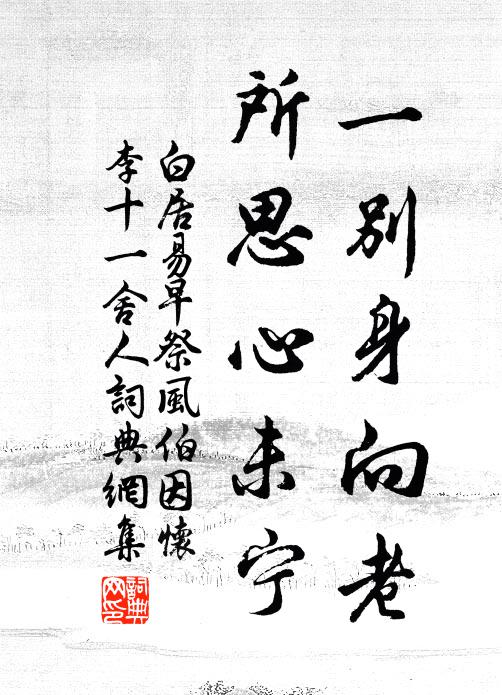 一别身向老
所思心未宁
白居易早祭風伯因懷
李十一舍人詞典網集
詞典网印